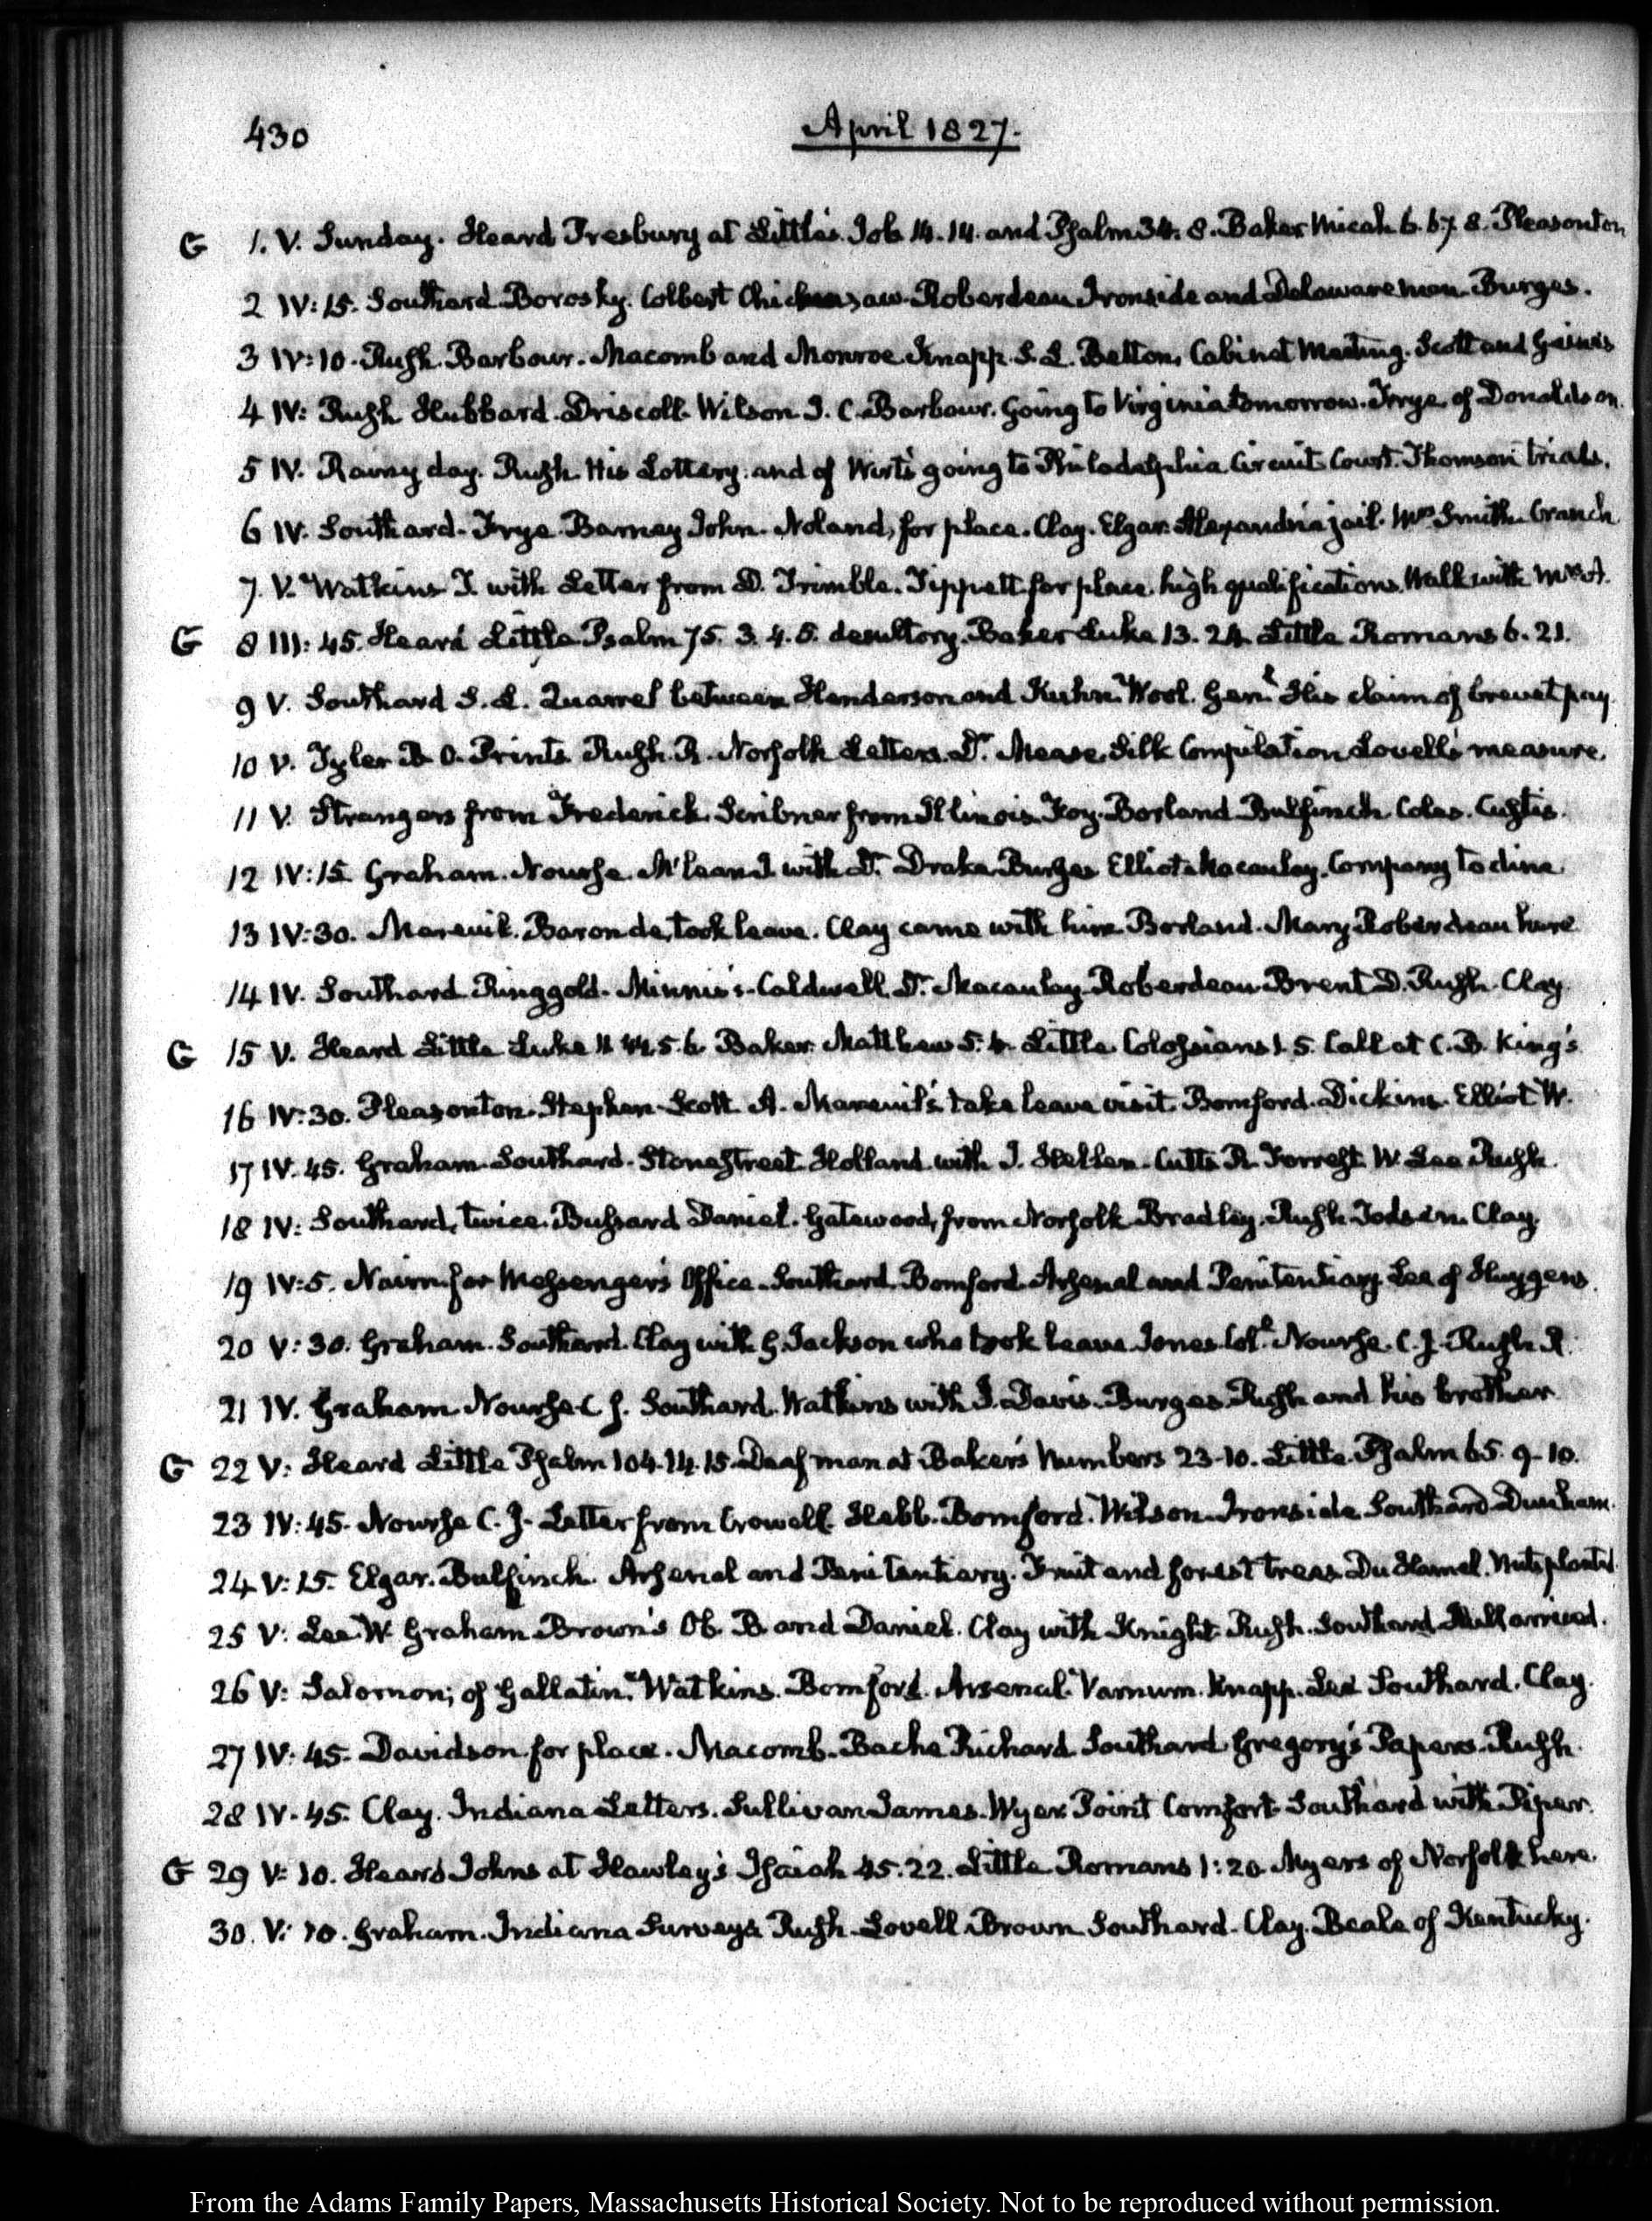 430
April 1827.
G 1. V. Sunday. Heard Presbury at Little's. Job 14. 14. and Psalm 34. 8. Baker Micah 6. 6.7. 8. Pleasonton
2 IV: 15. Southard. Borosky. Colbert Chickasaw. Roberdeau Ironside and Delaware man. Burges.
3 IV: 10. Rush. Barbour. Macomb and Monroe. Knapp. S. L. Belton, Cabinet Meeting. Scott and Gaines
4 IV: Rush Hubbard. Driscoll. Wilson J. C. Barbour. Going to Virginia tomorrow. Frye, of Donaldson.
5 IV. Rainy day. Rush. His Lottery. and of Wirt's going to Philadelphia Circuit Court. Thomson trials.
6 IV. Southard. Frye. Barney John. Noland, for place. Clay. Elgar. Alexandria jail. Mrs Smith. Cranch
7. V. Watkins T. with Letter from D. Trimble. Tippett for place. high qualifications. Walk with Mrs A.
G 8 III: 45. Heard Little Psalm 75. 3. 4. 5. desultory. Baker Luke 13. 24. Little Romans 6. 21.
9 V. Southard S. L. Quarrel between Henderson and Kuhn. Wool. Genl. His claim of brevet pay.
10 V. Tyler B. O. Prints. Rush. R. Norfolk Letters. Dr. Mease. Silk Compilation Lovell's measure.
11 V. Strangers from Frederick. Scribner from Illinois. Foy. Borland Bulfinch. Coles. Custis.
12 IV: 15. Graham. Nourse. McLean J. with Dr. Drake. Burges Elliot. Macaulay. Company to dine
13 IV: 30. Mareuil. Baron de, took leave. Clay came with him. Borland. Mary Roberdeau here
14 IV. Southard. Ringgold. Caldwell. Dr. Macaulay. Roberdeau. Brent D. Rush. Clay.
G 15 V. Heard Little Luke 11 44.5.6. Baker. Matthew 5. Little. Colossians 1. 5. Call at C. B. King's
16 IV: 30. Pleasonton. Stephen. Scott A. Mareuil's take leave visit. Bomford. Dickins. Elliot W.
17 IV. 45. Graham. Southard. Stonestreet Holland. with J. Hellen. Cutts R. Forrest. W. Lee Rush.
18 IV: Southard, twice. Bussard Daniel. Gatewood, from Norfolk Bradley. Rush. Clay.
19 IV: 5. Nairn for Messenger's Office. Southard. Bomford. Arsenal and Penitentiary. Lee of Huygens.
20 V: 30. Graham. Southard. Clay with G. Jackson who took leave. Jones. Coll. Nourse. C. J. Rush R.
21 IV. Graham. Nourse C. J. Southard. Watkins with J. Davis. Burges. Rush and his brother
G 22 V: Heard Little Psalm 104. 14. 15. Deaf man at Baker's Numbers 23-10. Little. Psalm 65. 9-10.
23 IV: 45. Nourse C. J. Letter from Crowell. Hebb. Bomford. Wilson. Ironside. Southard Dunham.
24 V: 15. Elgar. Bulfinch. Arsenal and Penitentiary. Fruit and forest trees. Du Hamel. Nuts planted
25 V: Lee W. Graham Brown's Ob. B. and Daniel. Clay with Knight. Rush. Southard Hull arrived.
26 V: Salomon; of Gallatin. Watkins. Bomford. Arsenal. Varnum. Knapp. Lee Southard. Clay.
27 IV. 45. Davidson for place. Macomb. Bache Richard. Southard Gregory's Papers. Rush.
28 IV. 45. Clay. Indiana Letters. Sullivan James. Wyer. Point Comfort. Southard with Piper.
G 29 V: 10. Heard Johns at Hawley's Isaiah 45. 22. Little Romans 1: 20. Myers of Norfolk here.
30. V: 10. Graham. Indiana Surveys Rush. Lovell. Brown. Southard. Clay. Beale of Kentucky.
From the Adams Family Papers, Massachusetts Historical Society. Not to be reproduced without permission.